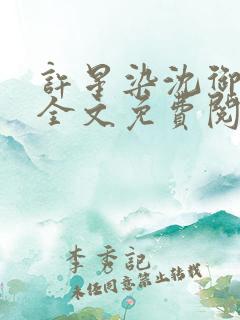 許星染沈御
全文免費閱
李秀記
未经同意禁止转载